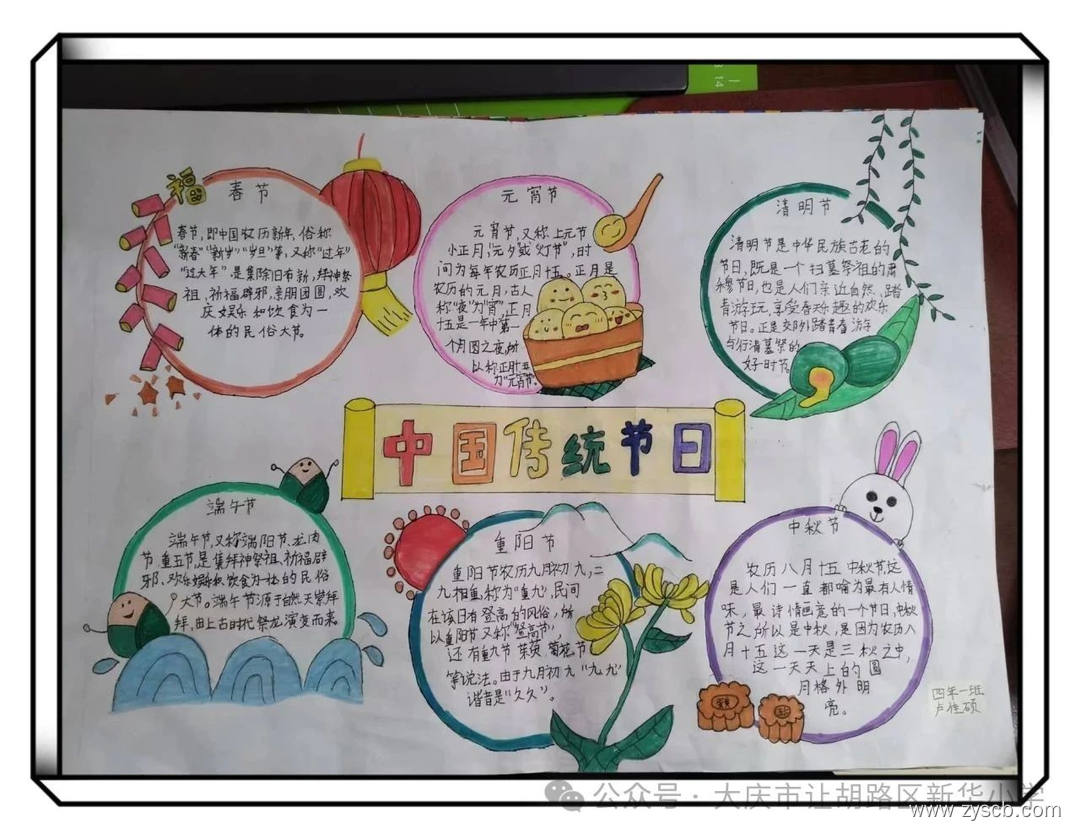 福
春节
春节,即中国农历新年,俗称
"新春""新岁""岁旦"等,又称"过年"
"过大年"是集除旧布新,拜神祭
祖,祈福辟邪,亲朋团圆,欢
庆娱乐和饮食为一
体的民俗大节。
元宵节
元宵节,又称上元节
小正月、元夕或"灯节",时
间为每年农历正月十五。正月是
农历的元月,古人
称"夜"为"宵",正月
十五是一年中第一
个月圆之夜,所
以称正月十五
为"元宵节"
清明节
清明节是中华民族古老的
节日,既是一个扫墓祭祖的肃
穆节日,也是人们亲近自然、踏
青游玩,享受春天乐趣的欢乐
节日。正是郊外踏青春游
与行清墓祭的
好时节。
中国传统节日
端午节
端午节,又称端阳节、龙肉
节、重五节,是集拜神祭祖、祈福辟
邪、欢庆娱乐和饮食为一体的民俗
大节。端午节源于自然天崇拜
拜,由上古时代祭龙演变而来。
重阳节
重阳节农历九月初九,二
九相重,称为"重九",民间
在该日有登高的风俗,所
以重阳节又称"登高节",
还有重九节 茱萸 菊花节
等说法。由于九月初九"九九"
谐音是"久久"。
中秋节
农历八月十五中秋节这
是人们一直都喻为最有人情
味,最诗情画意的一个节日,中秋
节之所以是中秋,是因为农历八
月十五这一天是三秋之中,
这一天天上的圆
月格外明
亮。
四年一班
卢佳硕
公众号·大庆市让胡路区新华小学
www.zyscb.com